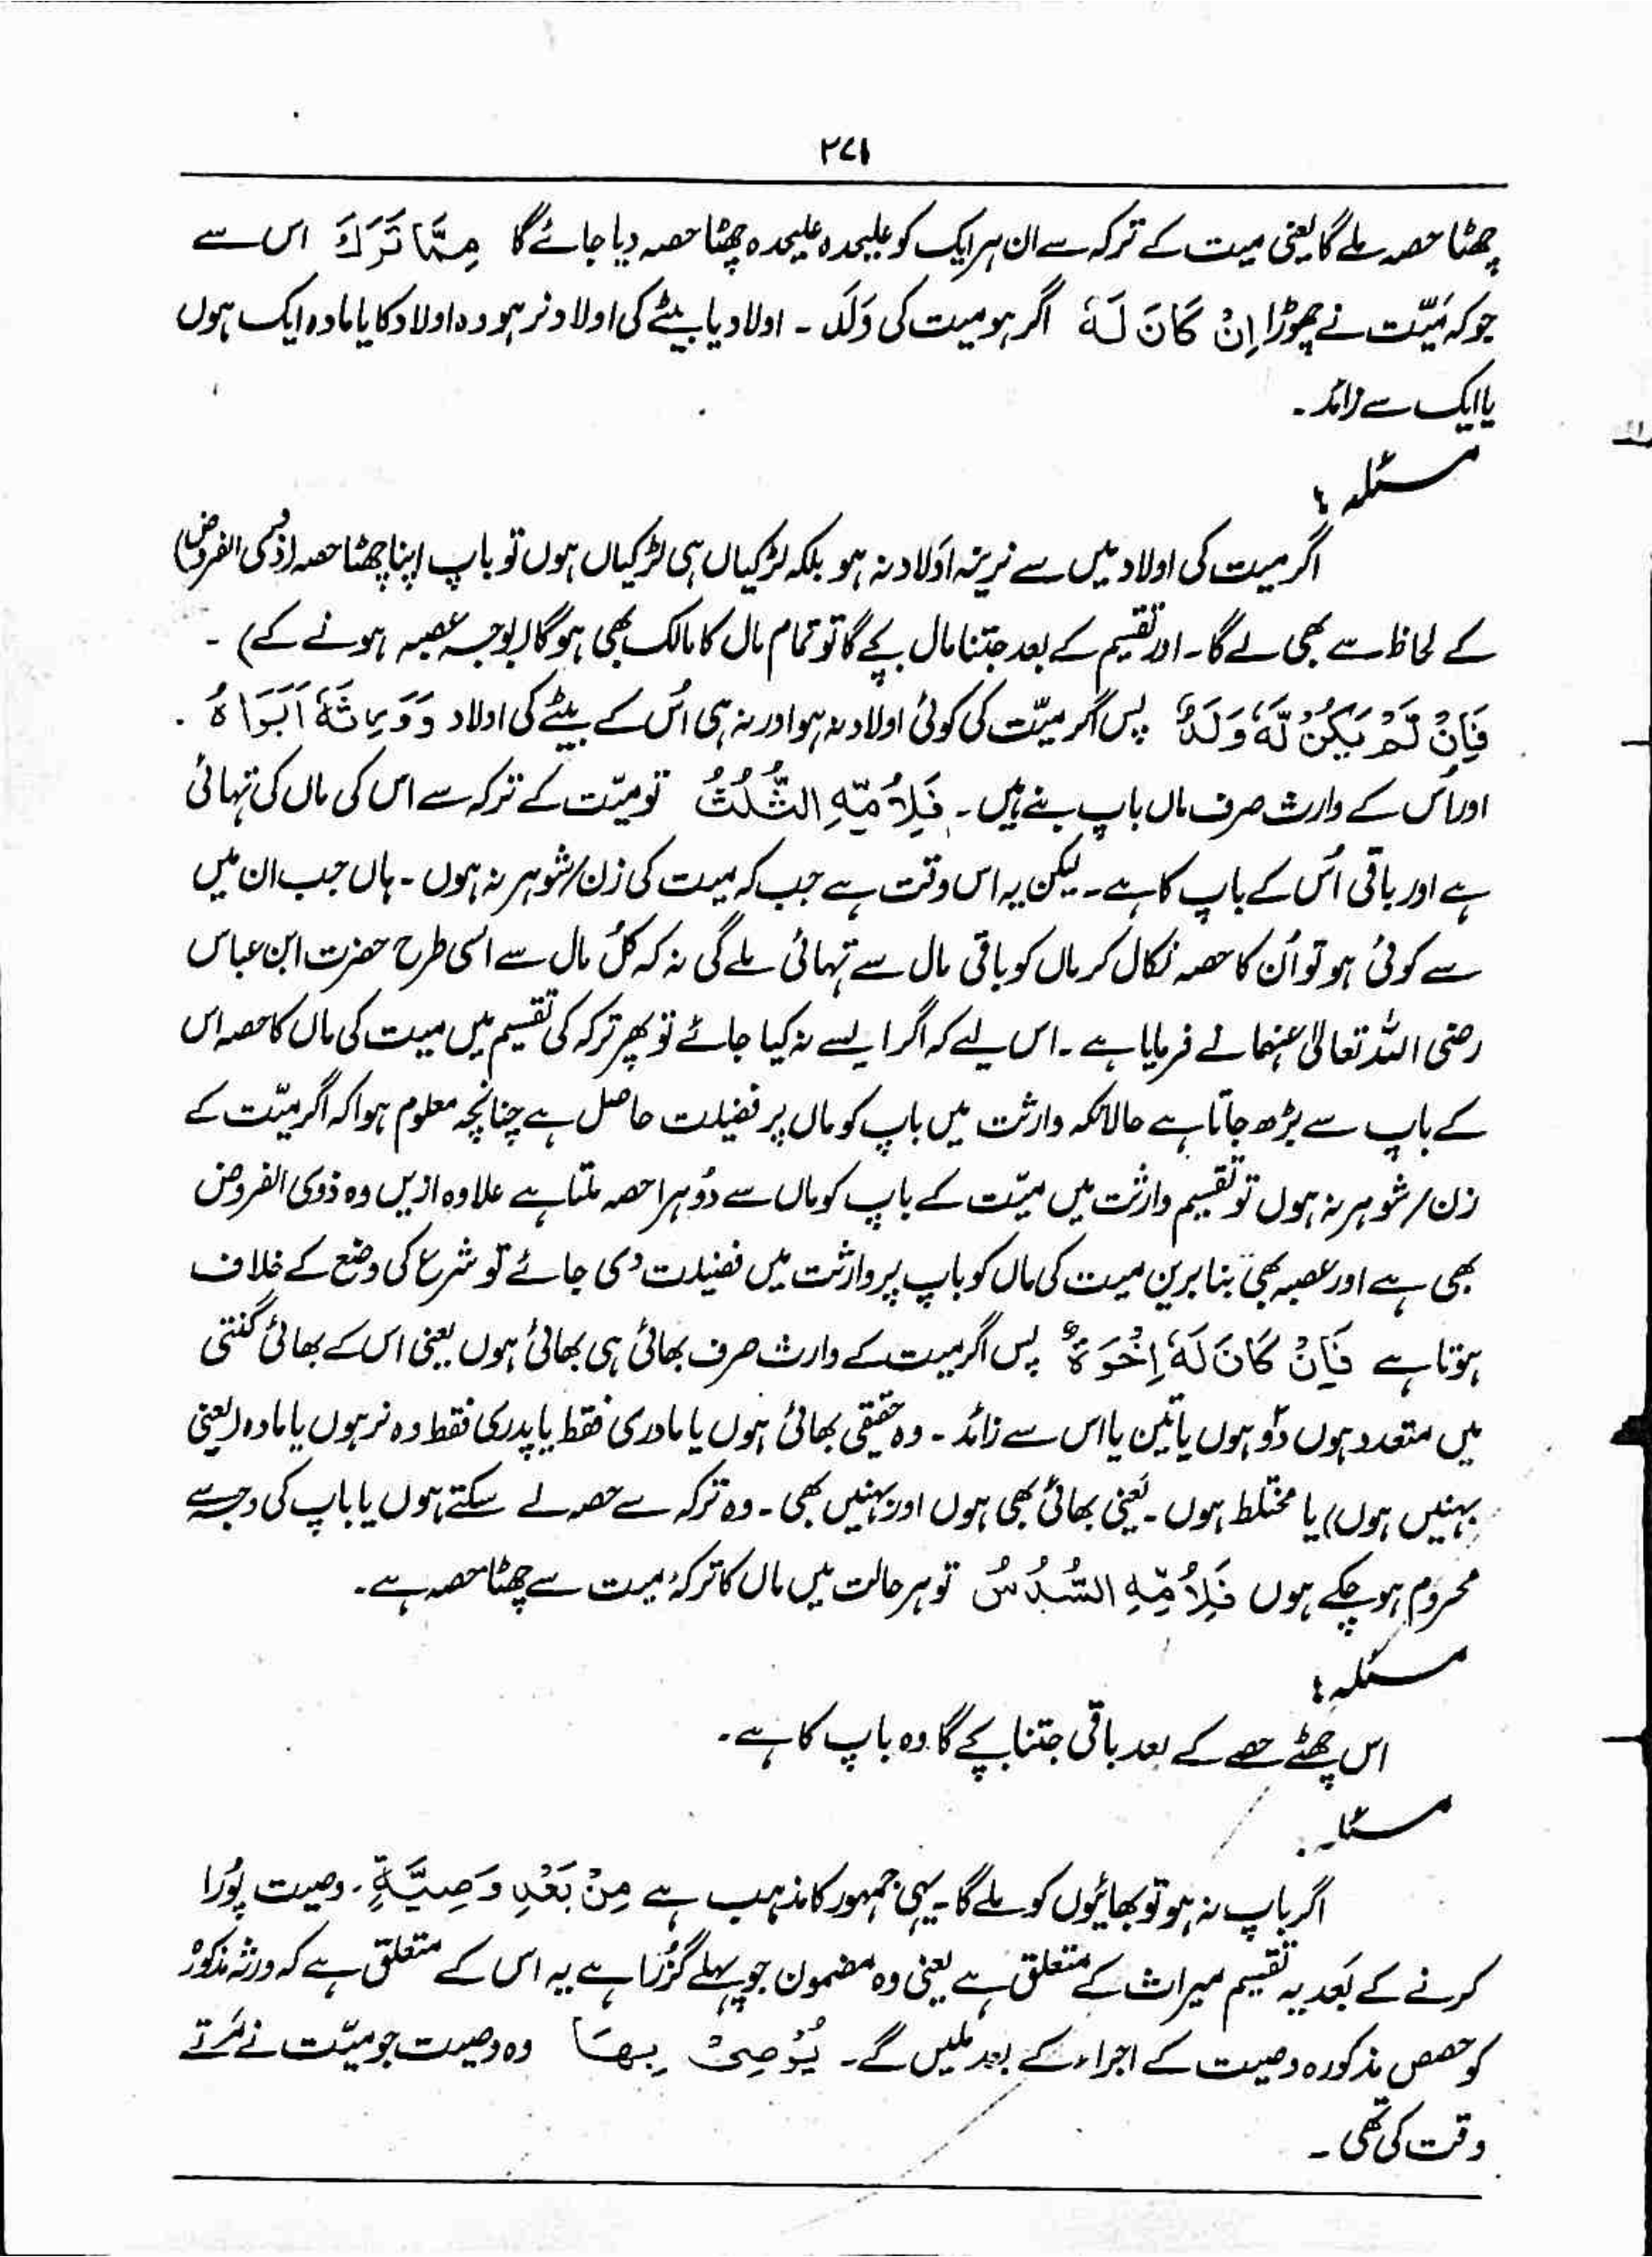 ۲۷۱
چھٹا حصہ ملے گا یعنی میت کے ترکہ سے ان ہر ایک کو علیحدہ علیحدہ چھٹا حصہ دیا جائے گا مِمَّا تَرَكَ اس سے
جو کہ میّت نے چھوڑا اِنْ كَانَ لَهٗ اگر ہو میت کی وَلَدٌ ۔ اولاد یا بیٹے کی اولاد نر ہو وہ اولاد کا یا مادہ ایک ہوں
یا ایک سے زائد ۔
مسئلہ :
اگر میت کی اولاد میں سے نرینہ اَولاد نہ ہو بلکہ لڑکیاں ہی لڑکیاں ہوں تو باپ اپنا چھٹا حصہ (ذوی الفروض)
کے لحاظ سے بھی لے گا ۔ اور تقسیم کے بعد جتنا مال بچے گا تو تمام مال کا مالک بھی ہو گا (بوجہ عصبہ ہونے کے) ۔
فَاِنْ لَّمْ يَكُنْ لَّهٗ وَلَدٌ پس اگر میّت کی کوئی اولاد نہ ہو اور نہ ہی اُس کے بیٹے کی اولاد وَوَرِثَهٗ اَبَوَاهُ ۔
اور اُس کے وارث صرف ماں باپ بنے ہیں ۔ فَلِاُمِّهِ الثُّلُثُ تو میّت کے ترکہ سے اس کی ماں کی تہائی
ہے اور باقی اُس کے باپ کا ہے ۔ لیکن یہ اس وقت ہے جب کہ میت کی زن/شوہر نہ ہوں ۔ ہاں جب ان میں
سے کوئی ہو تو اُن کا حصہ نکال کر ماں کو باقی مال سے تہائی ملے گی نہ کہ کُل مال سے اسی طرح حضرت ابن عباس
رضی اللہ تعالیٰ عنہما نے فرمایا ہے ۔ اس لیے کہ اگر ایسے نہ کیا جائے تو پھر ترکہ کی تقسیم میں میت کی ماں کا حصہ اس
کے باپ سے بڑھ جاتا ہے حالانکہ وارثت میں باپ کو ماں پر فضیلت حاصل ہے چنانچہ معلوم ہوا کہ اگر میّت کے
زن/شوہر نہ ہوں تو تقسیم وارثت میں میّت کے باپ کو ماں سے دُوہرا حصہ ملتا ہے علاوہ ازیں وہ ذوی الفروض
بھی ہے اور عصبہ بھی بنا برین میت کی ماں کو باپ پر وارثت میں فضیلت دی جائے تو شرع کی وضع کے خلاف
ہوتا ہے فَاِنْ كَانَ لَهٗ اِخْوَةٌ پس اگر میت کے وارث صرف بھائی ہی بھائی ہوں یعنی اس کے بھائی گنتی
میں متعدد ہوں دو ہوں یا تین یا اس سے زائد ۔ وہ حقیقی بھائی ہوں یا مادری فقط یا پدری فقط وہ نر ہوں یا مادہ (یعنی
بہنیں ہوں) یا مختلط ہوں ۔ یعنی بھائی بھی ہوں اور بہنیں بھی ۔ وہ ترکہ سے حصہ لے سکتے ہوں یا باپ کی وجہ سے
محروم ہو چکے ہوں فَلِاُمِّهِ السُّدُسُ تو ہر حالت میں ماں کا ترکۂ میت سے چھٹا حصہ ہے ۔
مسئلہ :
اس چھٹے حصے کے بعد باقی جتنا بچے گا وہ باپ کا ہے ۔
مسئلہ :
اگر باپ نہ ہو تو بھائیوں کو ملے گا ۔ یہی جمہور کا مذہب ہے مِنْ بَعْدِ وَصِيَّةٍ ۔ وصیت پُورا
کرنے کے بَعد یہ تقسیم میراث کے متعلق ہے یعنی وہ مضمون جو پہلے گزُرا ہے یہ اس کے متعلق ہے کہ ورثہ مذکور
کو حصص مذکورہ وصیت کے اجراء کے بعد ملیں گے ۔ يُّوْصِيْ بِهَا وہ وصیت جو میّت نے مَرتے
وقت کی تھی ۔